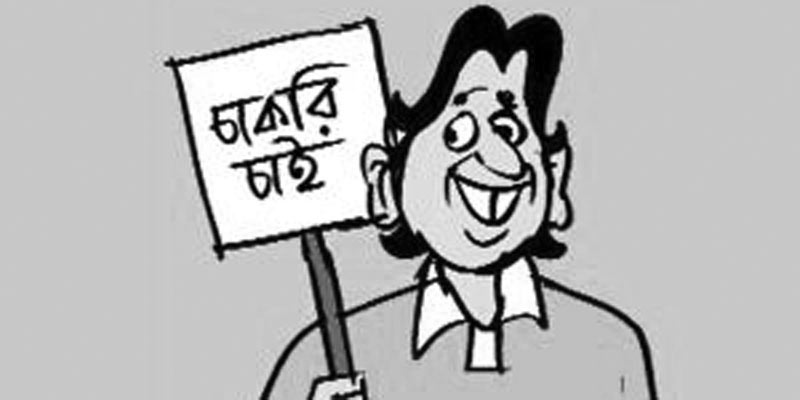 চাকরি
চাই